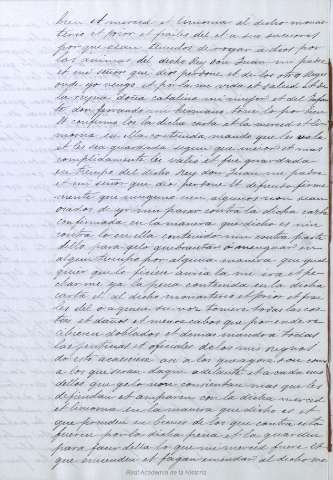 bien et merced et limosna al dicho monas
terio et prior et frailes del et a sus succesores
por que sean tenudos de rogar a dios por
las animas del dicho Rey don Juan mi padre
et mi señor que dios perdone et de los otros Reyes
onde yo vengo et por la mi vida et salud et de
la reyna doña catalina mi muger et del Infan
te don ferrando mi hermano tovelo por bien
et confirmo les la dicha carta et la merced et li
mosna en ella contenida mando que les vala
et les sea guardada segun que mejor et mas
complidamente les valio et fue guardada
en tiempo del dicho Rey don Juan mi padre
et mi señor que dios perdone et defiendo firme
mente que ninguno nin algunos non sean
osados de yr nin pasar contra la dicha carta
confirmada en la manera que dicho es nin
contra lo en ella contenido nin contra parte
dello para gelo quebrantar o menguar en
algun tiempo por alguna manera que qual
quier que lo ficiese avria la mi ira et pe
charme ya la pena contenida en la dicha
carta et al dicho monasterio et prior et frai
les del o a quien su voz toviere todas las cos
tas et daños et menoscabos que por ende re
cibiesen doblados et demas mando a todas
las justicias et oficiales de los mis regnos
do esto acaesciere asi a los que agora son como
a los que seran daqui adelante et a cada uno
dellos que gelo non consientan mas que les
defiendan et amparen con la dicha merced
et limosna en la manera que dicho es et
que prendan en bienes de los que contra esto
fueren por la dicha pena et la guarden
para facer della lo que mi merced fuere et
que enmienden et fagan enmendar al dicho mo
Real Academia de la Historia